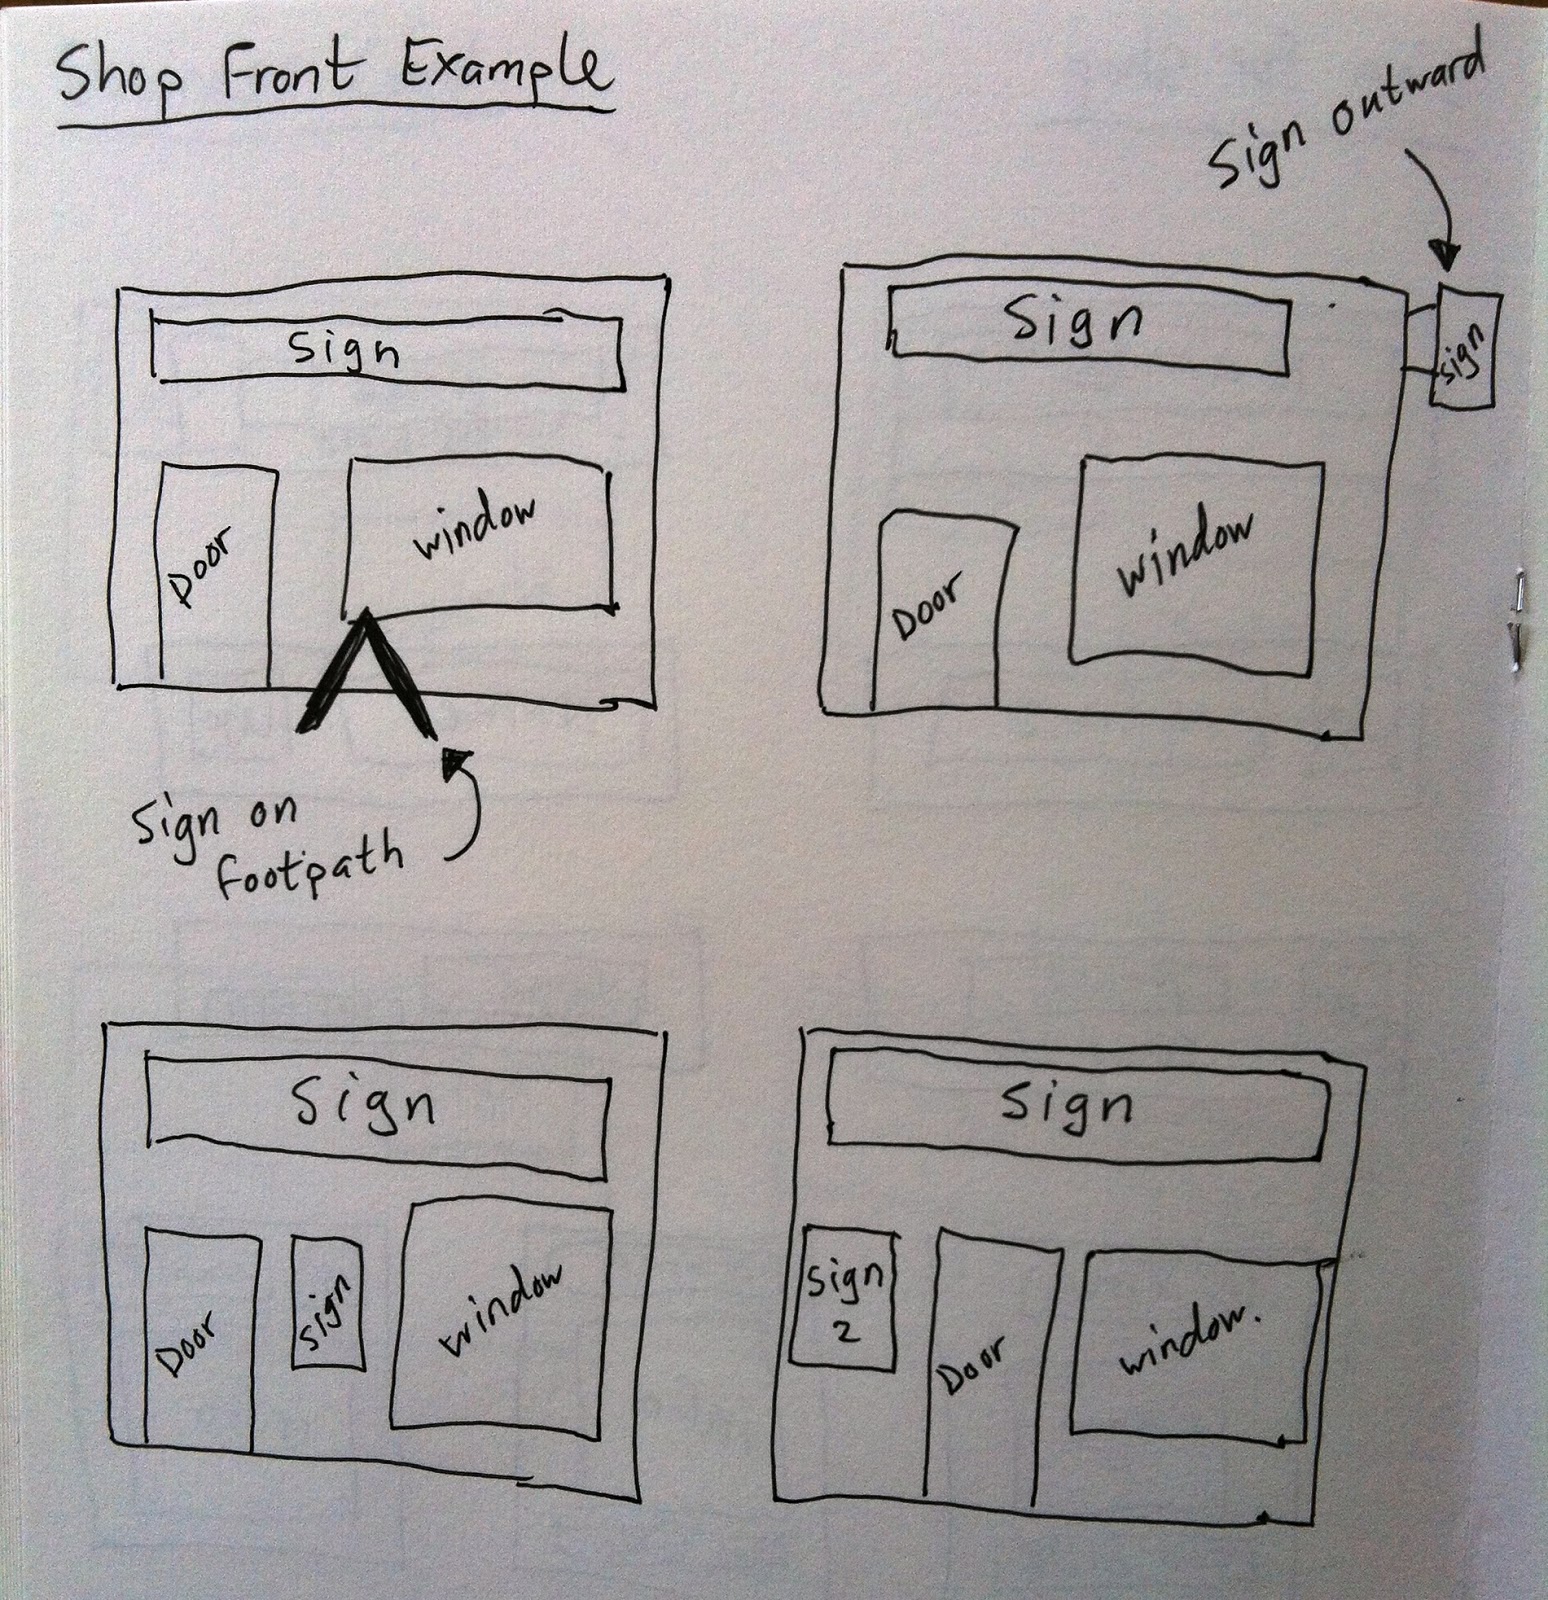 Shop Front Example
Sign outward
Sign
Door
window
Sign on
footpath
Sign
sign
Door
window
Sign
Door
sign
window
Sign
Sign
2
Door
window.